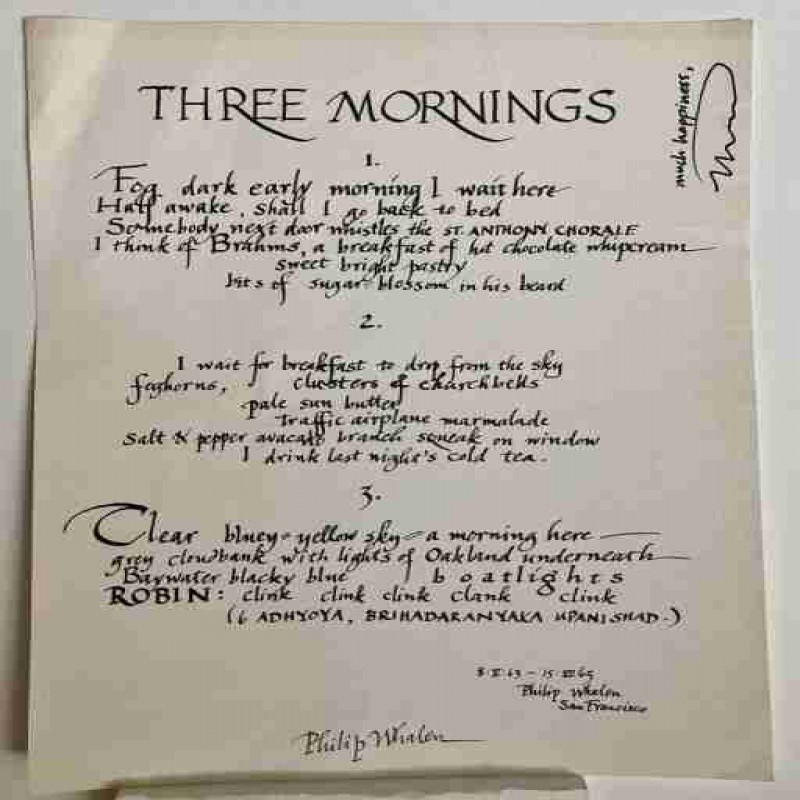 THREE MORNINGS
much happiness,
1.
Fog dark early morning I wait here
Half awake, shall I go back to bed
Somebody next door whistles the ST. ANTHONY CHORALE
I think of Brahms, a breakfast of hot chocolate whipcream
sweet bright pastry
bits of sugar blossom in his beard
2.
I wait for breakfast to drop from the sky
foghorns, clusters of churchbells
pale sun butter
traffic airplane marmalade
Salt & pepper avacado branch squeak on window
I drink last night's cold tea.
3.
Clear bluey-yellow sky - a morning here
grey cloudbank with lights of Oakland underneath
Baywater blacky blue boatlights
ROBIN: clink clink clink clank clink
(6 ADHYOYA, BRIHADARANYAKA UPANISHAD.)
Philip Whalen
San Francisco
Philip Whalen